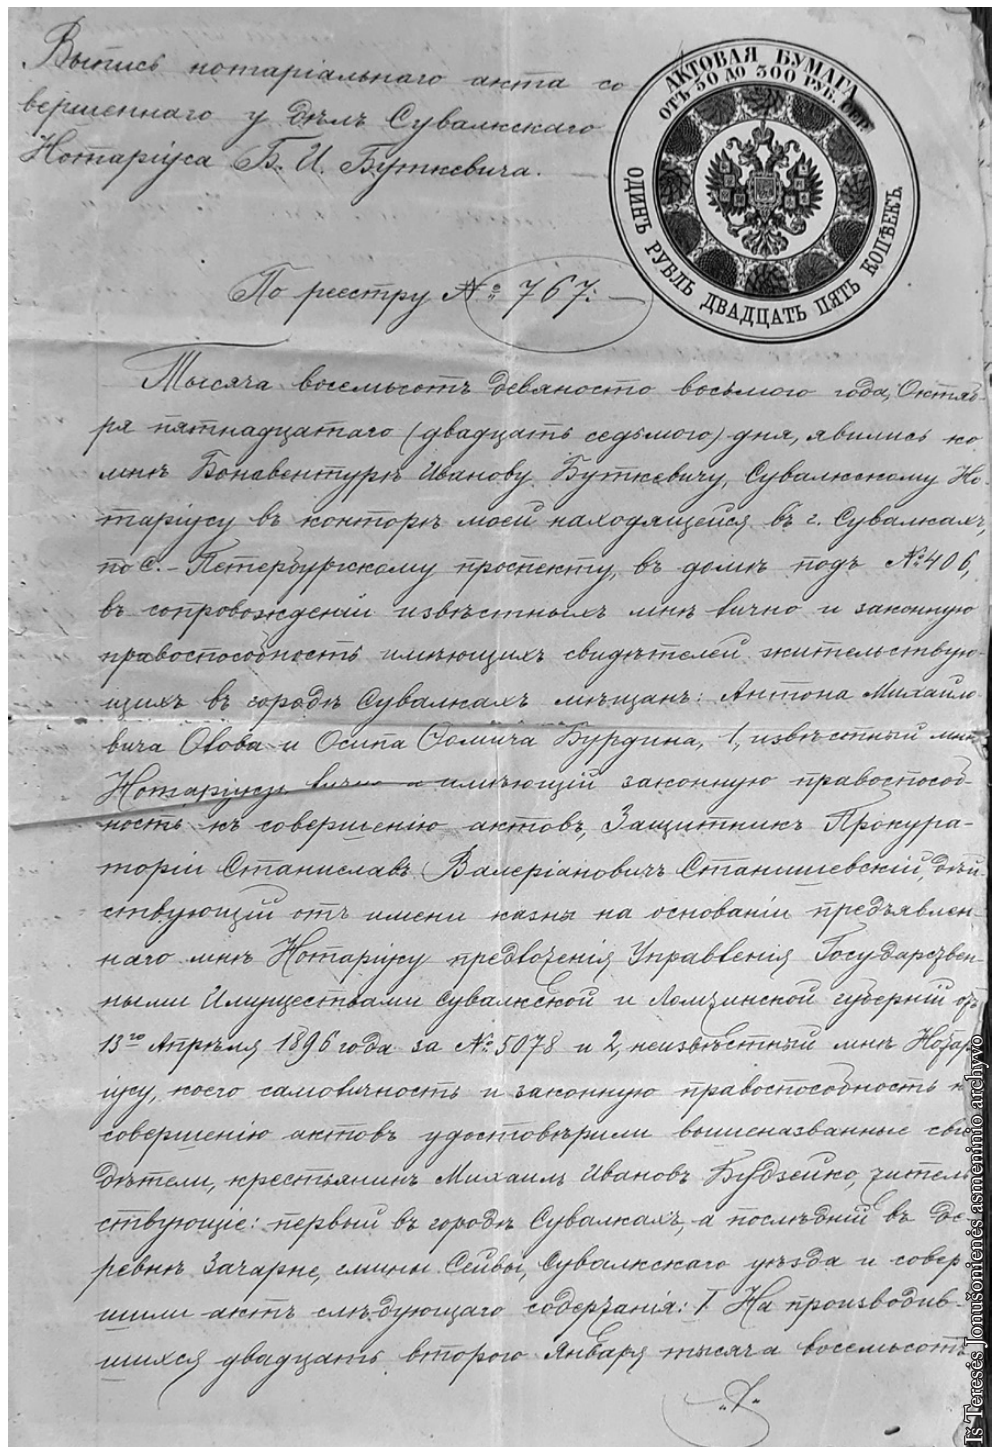 Выпись нотаріальнаго акта со
вершеннаго у дѣлъ Сувалкскаго
Нотаріуса Б. И. Буткевича.
АКТОВАЯ БУМАГА
ОТЪ 50 ДО 300 РУБ. СЕР.
ОДИНЪ РУБЛЬ ДВАДЦАТЬ ПЯТЬ КОПѢЕКЪ
По реестру № 767: —
Тысяча восемьсотъ девяносто восьмого года, Октяб-
ря пятнадцатаго (двадцать седьмого) дня, явились ко
мнѣ Бонавентурѣ Иванову Буткевичу, Сувалкскому Но-
таріусу въ конторѣ моей находящейся въ г. Сувалкахъ,
по С.-Петербургскому проспекту, въ домѣ подъ № 406,
въ сопровожденіи извѣстныхъ мнѣ лично и законную
правоспособность имѣющихъ свидѣтелей жительствую-
щихъ въ городѣ Сувалкахъ мѣщанъ: Антона Михайло-
вича и Осипа Бурдина, 1, извѣстный мнѣ
Нотаріусу лично и имѣющій законную правоспособ-
ность къ совершенію актовъ, Защитникъ Прокура-
торіи Станиславъ Валеріановичъ Станишевскій, дѣй-
ствующій отъ имени казны на основаніи предъявлен-
наго мнѣ Нотаріусу предложенія Управленія Государствен-
ными Имуществами Сувалкской и Ломжинской губерній отъ
13го Апрѣля 1896 года за № 5078 и 2, неизвѣстный мнѣ Нотар
іусу, коего самоличность и законную правоспособность къ
совершенію актовъ удостовѣрили вышеназванные сви
дѣтели, крестьянинъ Михаилъ Ивановъ Будзейко, житель
ствующіе: первый въ городѣ Сувалкахъ, а послѣдній въ де
ревнѣ Зачарне, гмины Сейвы, Сувалкскаго уѣзда и совер
шили актъ слѣдующаго содержанія: I На производив-
шихся двадцать второго Января тысяча восемьсотъ
Iš Teresės Jonušonienės asmeninio archyvo